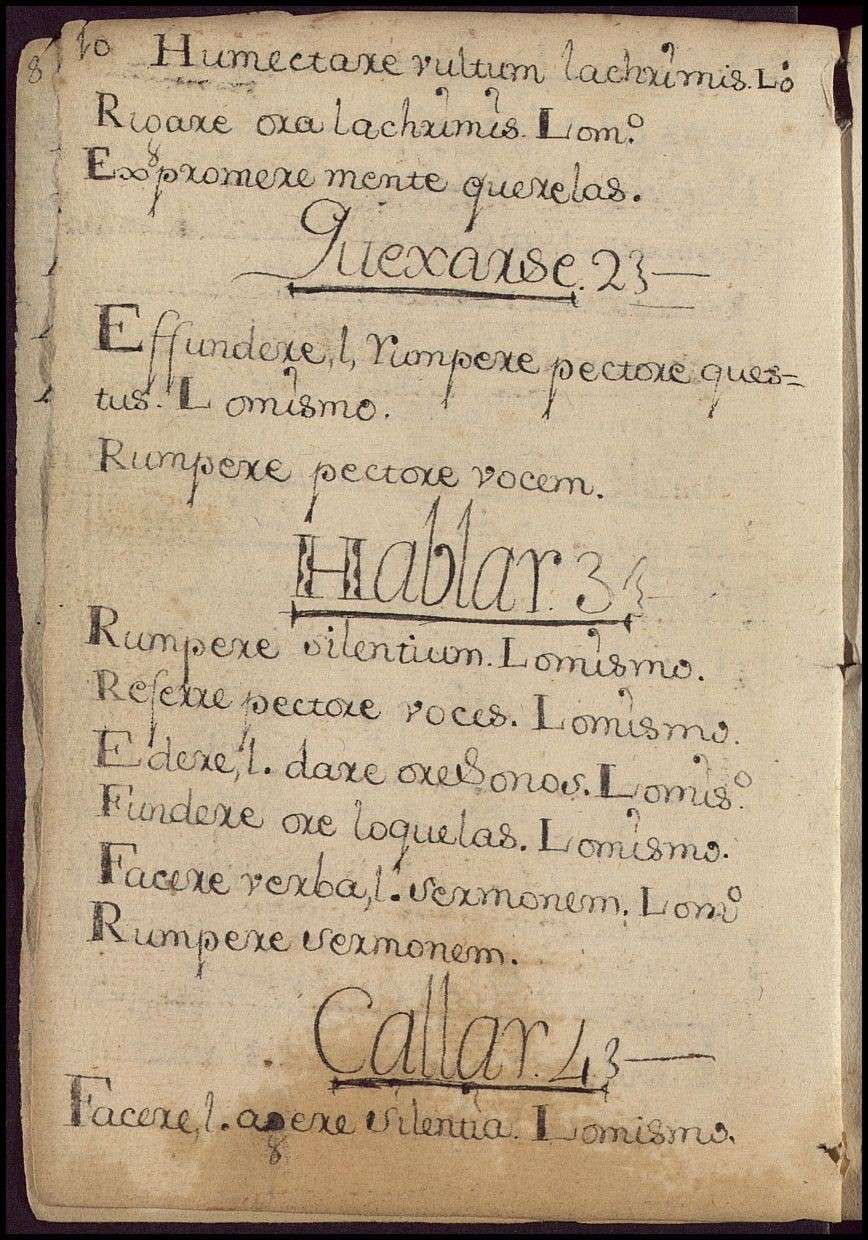 8 10 Humectare vultum lachrimis. Lo
Rigare ora lachrimis. Lomº.
Expromere mente querelas.
Quexarse. 23
Effundere, l, rumpere pectore ques=
tus. Lo mismo.
Rumpere pectore vocem.
Hablar. 3
Rumpere silentium. Lo mismo.
Referre pectore voces. Lo mismo.
Edere, l. dare ore sonos. Lo misº.
Fundere ore loquelas. Lo mismo.
Facere verba, l. sermonem. Lo mº
Rumpere sermonem.
Callar. 43
Facere, l. agere silentia. Lo mismo.